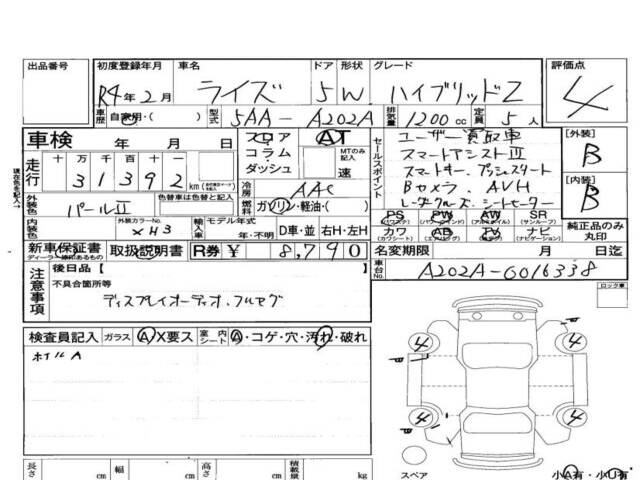 出品番号 初度登録年月 車名 ドア 形状 グレード 評価点
R4年2月 ライズ 5 W ハイブリッドZ 4
車歴 自家用・( ) 型式 5AA-A202A 排気量 1200 cc 定員 5 人
車検 年 月 日 フロア AT セールスポイント ユーザー買取車 [外装] B
走行 十 万 千 百 十 一 コラム MTのみ記入 スマートアシストⅢ
現在色を記入→ 31392 km ダッシュ 速 スマートキー、プッシュスタート
外装色 パールⅡ 色替車は色替と記入 冷房 AAC Bカメラ、AVH [内装] B
燃料 ガソリン・軽油・( ) レーダークルーズ、シートヒーター
内装色 外装カラーNo. XH3 輸入車 モデル年式 年・不明 D車・並 右H・左H
PS PW AW SR
(パワステ) (パワーウインド) (アルミ) (サンルーフ)
カワ AB TV ナビ 純正品のみ丸印
(カワシート) (エアバッグ) (テレビ) (ナビゲーション)
新車保証書 取扱説明書 R券 ¥ 8,790 名変期限 月 日迄
ディーラー捺印あるもの
注意事項 後日品【 】 車台No. A202A-0016338
不具合箇所等 ロック車
ディスプレイオーディオ、フルセグ
検査員記入 ガラス A X要ス 室内シート A・コゲ・穴・汚れ・破れ
ホイルA
4 4
4 4
長さ cm 幅 cm 高さ cm 積載量 kg スペア 小A有・小U有